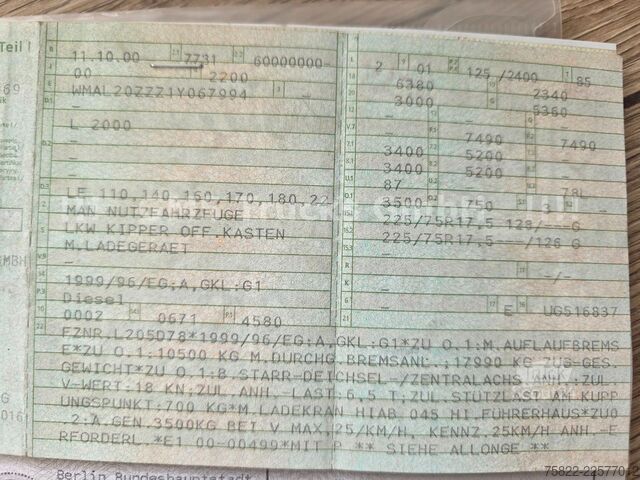 Teil I
11.10.00 7731 60000000-
00 2200
WMAL20ZZZ1Y067994 -
-
L 2000
-
-
-
LE 110,140,160,170,180,22
MAN NUTZFAHRZEUGE
LKW KIPPER OFF.KASTEN
M.LADEGERAET
-
1999/96/EG;A,GKL:G1
Diesel
0002 0671 4580
2 01 125 /2400 85
6380 2340
3000 5360
- - -
- 7490 7490
3400 5200 -
3400 5200 -
87 - 78L
3500 750 - -
225/75R17,5 129/---G
225/75R17,5---/126 G
-
- -/-
-
- E UG516837
FZNR.L205D78*1999/96/EG;A,GKL:G1*ZU O.1:M.AUFLAUFBREMS
E*ZU O.1:10500 KG M.DURCHG.BREMSANL.;17990 KG ZUG-GES.
GEWICHT*ZU O.1:B.STARR-DEICHSEL-/ZENTRALACHS.ANH.:ZUL.
V-WERT:18 KN;ZUL.ANH.-LAST:6,5 T;ZUL.STÜTZLAST AM KUPP
UNGSPUNKT:700 KG*M.LADEKRAN HIAB 045 HI.FÜHRERHAUS*ZU0
2:A.GEN.3500KG BEI V MAX.25/KM/H, KENNZ.25KM/H ANH.-E
RFORDERL.*E1 00-00499*MIT P ** SIEHE ALLONGE **
Berlin Bundeshauptstadt
75822-22577012